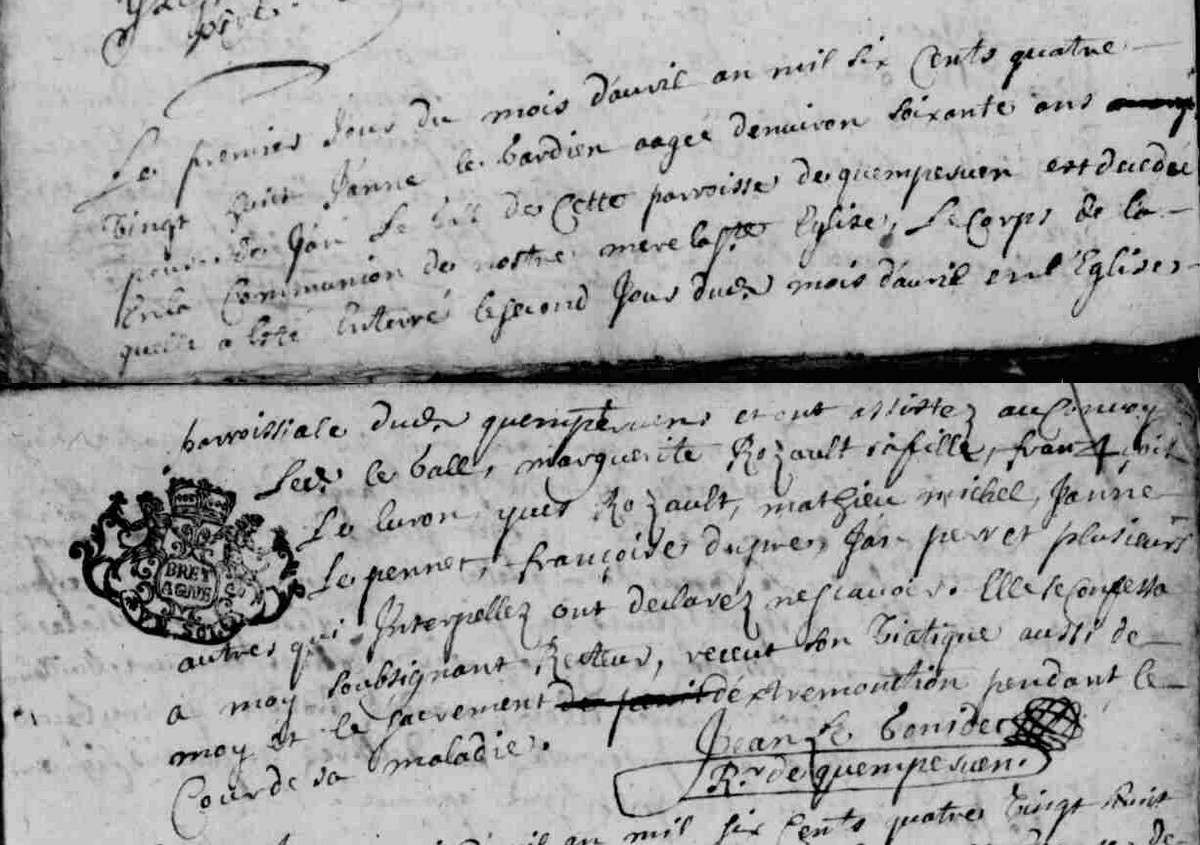 Le premier Jour du mois d'auril an mil six Cents quatre
Vingt huict Janne le bardien aagée denuiron soixante ans
de Jan Le ball de Cette parroisse de quemperuen est decedée
En la Communion de nostre mere la ste Eglise, Le Corps de la
quelle a esté Enterré le second Jour dudt mois d'auril en l'Eglise
parroissiale dudt quemperuen et ont assistez au Conuoy
le ball, marguerite Rozault sa fille,
Le luron, yues Rozault, mathieu michel, Janne
Le pennec, françoise Jan perr et plusieurs
autres qui Interpellez ont declarez ne scauoir. Elle se Confessa
a moy soubsignant Recteur, receut son Viatique aussi de
moy et le sacrement d'extremontion pendant le
Cour de sa maladie.
Jean Le
Rr de quemperuen.
BRET
AGNE
an mil six Cents quatre Vingt huict